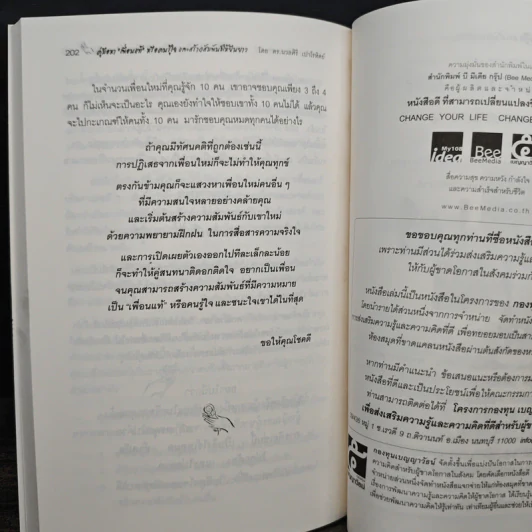 202
คู่มือหา "เพื่อนแท้" หรือคนรู้ใจ และสร้างสัมพันธ์ที่ยืนยาว
โดย ดร.นวลศิริ เปาโรหิตย์
ในจำนวนเพื่อนใหม่ที่คุณรู้จัก 10 คน เขาอาจชอบคุณเพียง 3 ถึง 4
คน ก็ไม่เห็นจะเป็นอะไร คุณเองยังทำใจให้ชอบเขาทั้ง 10 คนไม่ได้ แล้วคุณ
จะไปเกณฑ์ให้คนทั้ง 10 คน มารักชอบคุณหมดทุกคนได้อย่างไร
ถ้าคุณมีทัศนคติที่ถูกต้องเช่นนี้
การปฏิเสธจากเพื่อนใหม่ก็จะไม่ทำให้คุณทุกข์
ตรงกันข้ามคุณก็จะแสวงหาเพื่อนใหม่คนอื่น ๆ
ที่มีความสนใจหลายอย่างคล้ายคุณ
และเริ่มต้นสร้างความสัมพันธ์กับเขาใหม่
ด้วยความพยายามฝึกฝน ในการสื่อสารความจริงใจ
และการเปิดเผยตัวเองออกไปทีละเล็กละน้อย
ก็จะทำให้คู่สนทนาติดอกติดใจ อยากเป็นเพื่อน
จนคุณสามารถสร้างความสัมพันธ์ที่มีความหมาย
เป็น "เพื่อนแท้" หรือคนรู้ใจ และชนะใจเขาได้ในที่สุด
ขอให้คุณโชคดี
ความมุ่งมั่นของสำนักพิมพ์ใน
สำนักพิมพ์ บี มีเดีย กรุ๊ป (Bee Me
คือผู้ผลิตและจำหน่
หนังสือดี ที่สามารถเปลี่ยนแปลงชี
CHANGE YOUR LIFE CHANGE
My108
idea
Bee
BeeMedia
สื่อความสุข ความหวัง กำลังใจ
และความสำเร็จสำหรับชีวิต
www.BeeMedia.co.th
ขอขอบคุณทุกท่านที่ซื้อหนังสือ
เพราะท่านมีส่วนได้ร่วมส่งเสริมความรู้แล
ให้กับผู้ขาดโอกาสในสังคมร่วมกั
หนังสือเล่มนี้เป็นหนังสือในโครงการของ กองท
โดยนำรายได้ส่วนหนึ่งจากการจำหน่าย จัดทำหนัง
ส่งเสริมความรู้และความคิดที่ดี เพื่อทยอยมอบเป็นสา
ห้องสมุดที่ขาดแคลนหนังสือผ่านต้นสังกัดของห
หากท่านมีคำแนะนำ ข้อเสนอแนะหรือต้องการ
หนังสือที่ดีและเป็นประโยชน์เพื่อให้คณะกรรมกา
ท่านสามารถติดต่อได้ที่ โครงการกองทุน เบญ
เพื่อส่งเสริมความรู้และความคิดที่ดีสำหรับผู้ข
หมู่ 1 ซ.เรวดี 9 ถ.ติวานนท์ อ.เมือง นนทบุรี 11000
กองทุนเบญญาวัลน์ จัดตั้งขึ้นเพื่อแบ่งปันโอกาสในการ
ความคิดสำหรับผู้ขาดโอกาสในสังคม